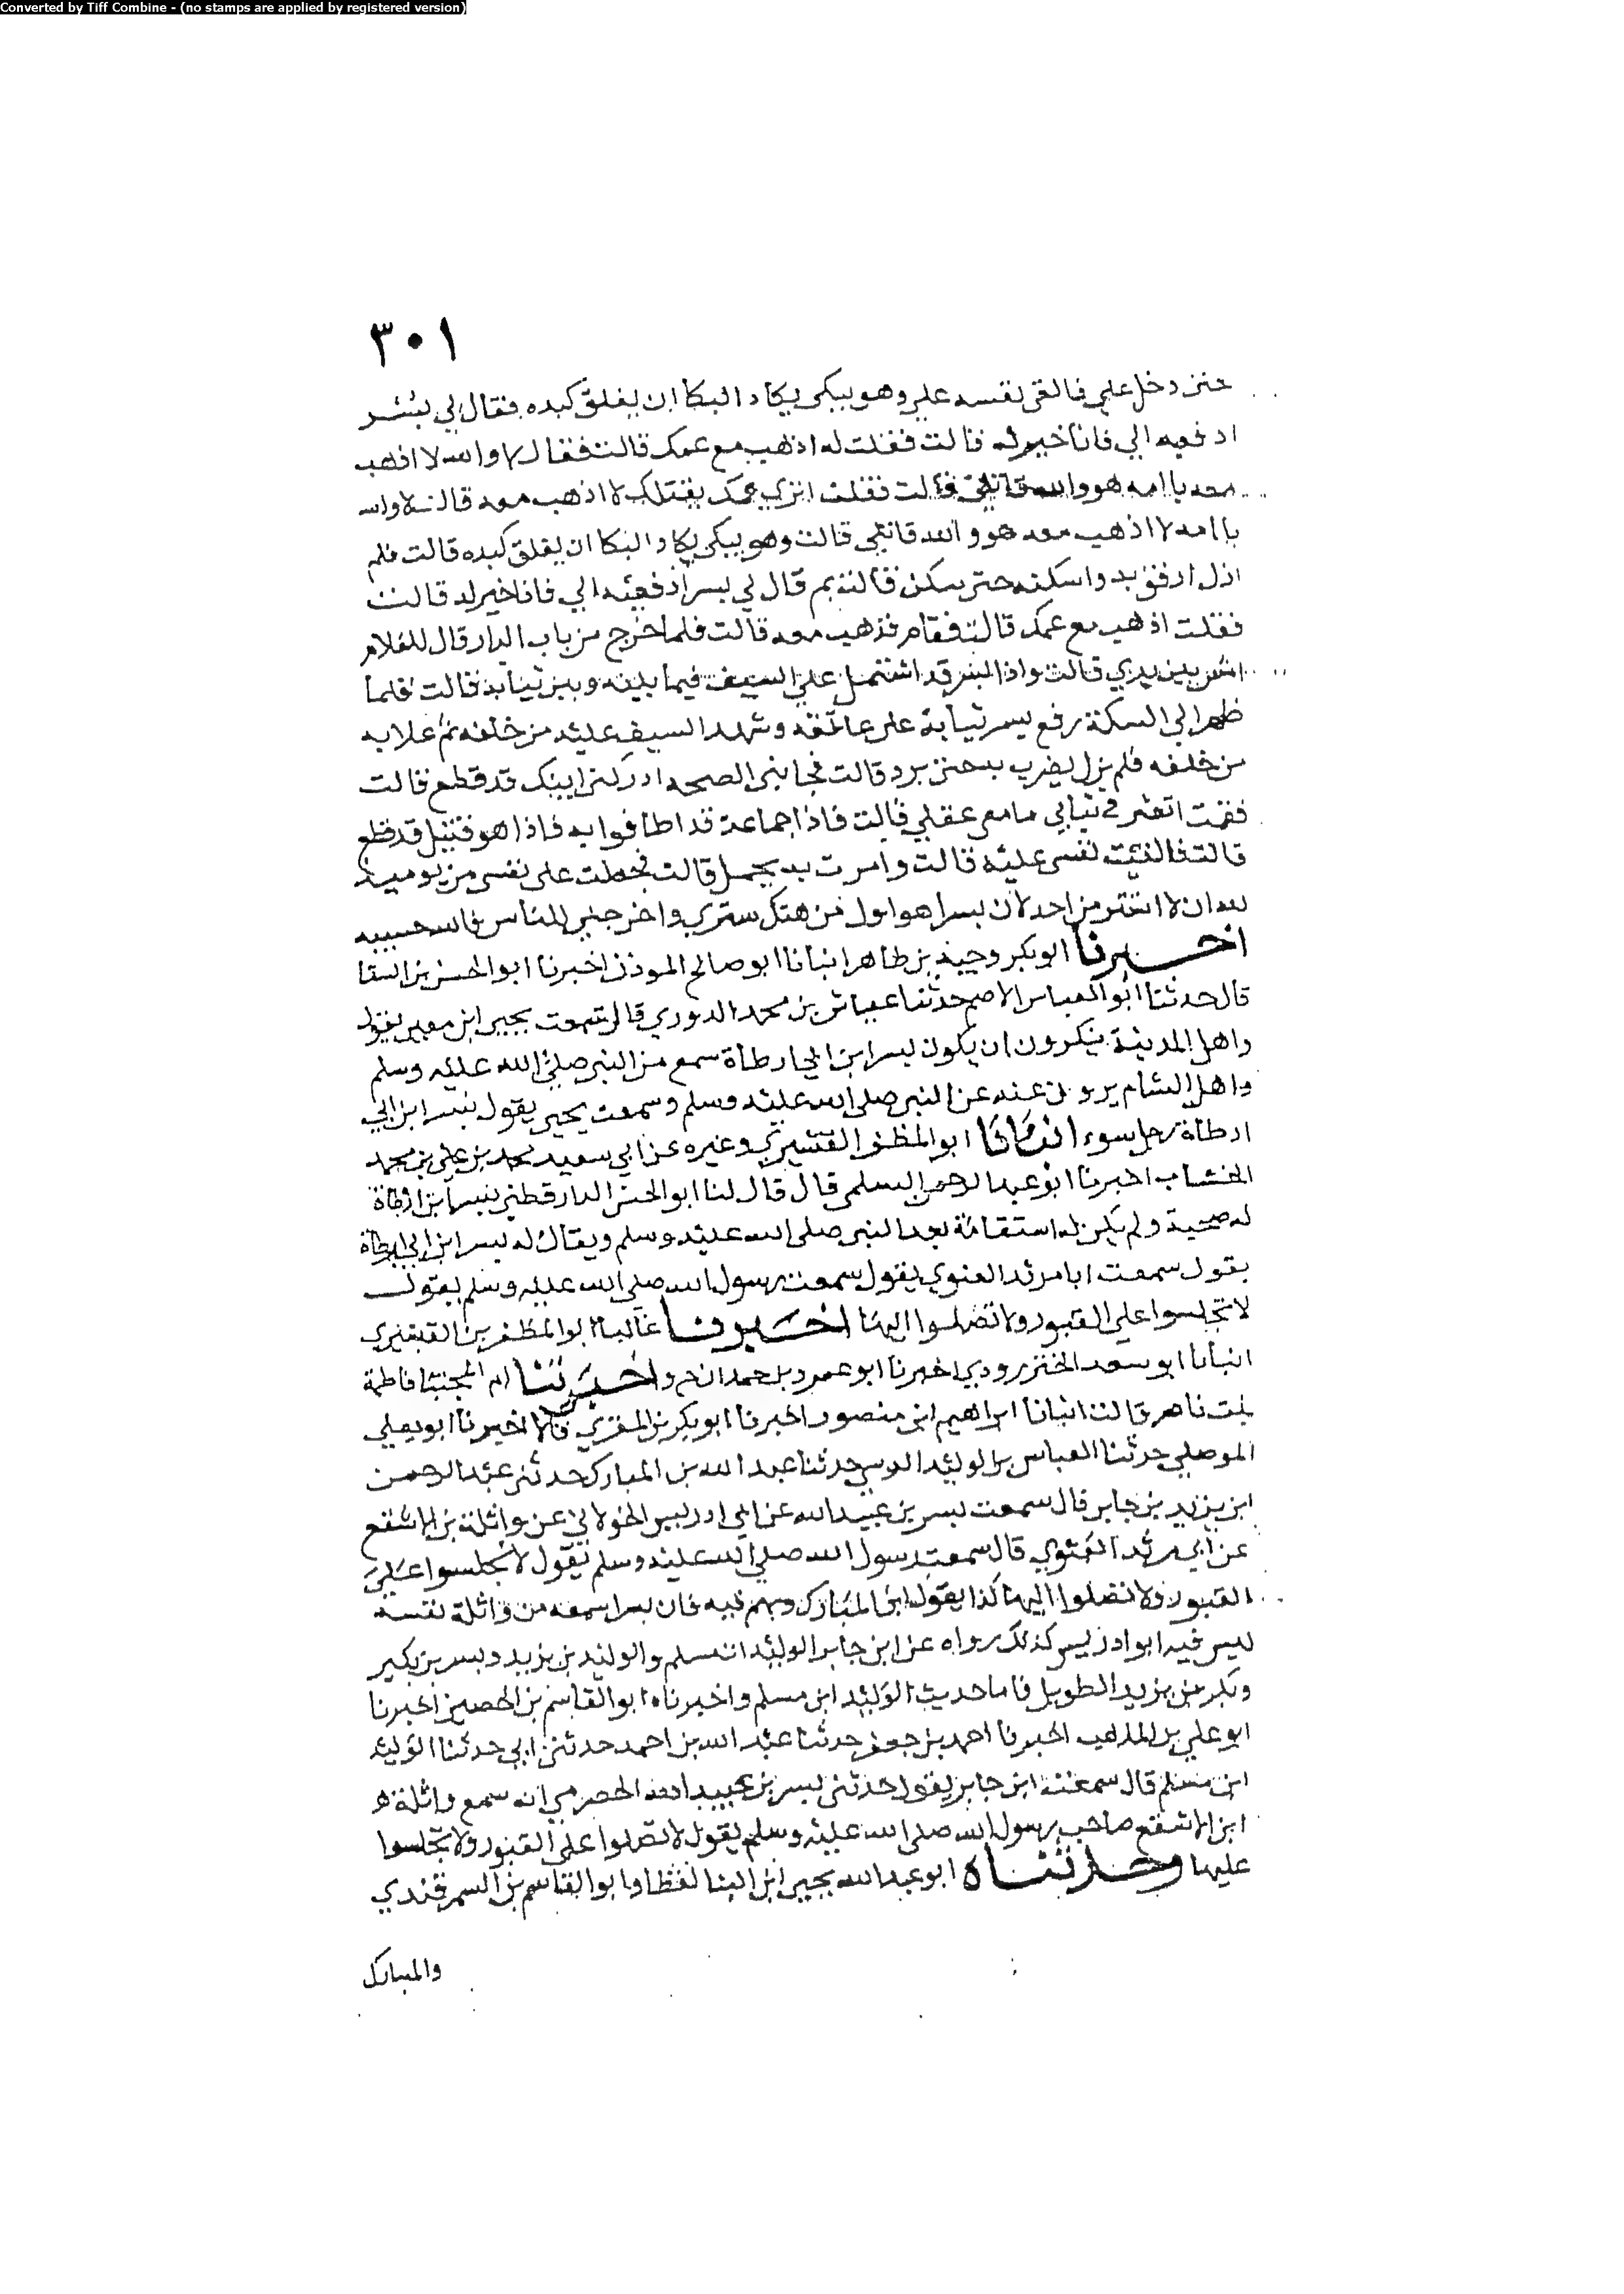 Converted by Tiff Combine - (no stamps are applied by registered version)
٣٠١
حتى دخل علي فالقى نفسه علي وهو يبكى يكاد البكا ان يفلق كبده فقال لي بسر
ادفعيه الي فانا خير له قالت فقلت له اذهب مع عمك قالت فقال لا والله لا اذهب
معه يا امه هو والله قاتلي قالت فقلت اترى عمك يقتلك لا اذهب معه قال لا والله
يا امه لا اذهب معه هو والله قاتلي قالت وهو يبكى يكاد البكا ان يفلق كبده قالت فلم
ازل ارفق به واسكته حتى سكن قالت ثم قال لي بسر ادفعيه الي فانا خير له قالت
فقلت اذهب مع عمك قالت فقام فذهب معه قالت فلما خرج من باب الدار قال للغلام
امش بين يدي قالت واذا بسر قد اشتمل على السيف فيما بينه وبين ثيابه قالت فلما
ظهر الي السكة رفع بسر ثيابه على عاتقه وشهر السيف عليه من خلفه ثم علا به
من خلفه فلم يزل يضرب به حتى برد قالت فجاتنى الصيحه ادركى ابنك قد قطع قالت
فقمت اتعثر في ثيابي ما معى عقلي قالت فاذا جماعة قد اطافوا به فاذا هو قتيل قد قطع
قالت فالقيت نفسى عليه قالت وامرت به يحمل قالت فجعلت على نفسى من يوميذ
لله ان لا استتر من احد لان بسرا هو اول من هتك ستري واخرجني للناس فالله حسيبه
اخبرنا ابو بكر وجيه بن طاهر انبانا ابو صالح الموذن اخبرنا ابو الحسن بن السقا
قال حدثنا ابو العباس الاصم حدثنا عباس بن محمد الدوري قال سمعت يحيى ابن معين يقول
واهل المدينة ينكرون ان يكون بسر ابن ابي ارطاة سمع من النبي صلى الله عليه وسلم
واهل الشام يروون عنه عن النبي صلى الله عليه وسلم وسمعت يحيى يقول بسر ابن ابي
ارطاة رجل سوء انبانا ابو المظفر القشيري وغيره عن ابي سعيد محمد بن علي بن محمد
الخشاب اخبرنا ابو عبد الرحمن السلمي قال قال لنا ابو الحسن الدارقطني بسر ابن ارطاة
له صحبة ولم يكن له استقامة بعد النبي صلى الله عليه وسلم ويقال له بسر ابن ابي ارطاة
يقول سمعت ابا مرثد الغنوي يقول سمعت رسول الله صلى الله عليه وسلم يقول
لا تجلسوا على القبور ولا تصلوا اليها اخبرنا عاليا ابو المظفر بن القشيري
انبانا ابو سعد الجنزرودي اخبرنا ابو عمرو بن حمدان ح واخبرتنا ام المجتبا فاطمة
بنت ناصر قالت انبانا ابراهيم ابن منصور اخبرنا ابو بكر بن المقري قالا اخبرنا ابو يعلي
الموصلي حدثنا العباس بن الوليد النرسي حدثنا عبد الله بن المبارك حدثنى عبد الرحمن
ابن يزيد بن جابر قال سمعت بسر بن عبيد الله عن ابي ادريس الخولاني عن واثلة بن الاسقع
عن ابي مرثد الغنوي قال سمعت رسول الله صلى الله عليه وسلم يقول لا تجلسوا على
القبور ولا تصلوا اليها كذا يقول ابن المبارك وهم فيه فان بسرا سمعه من واثلة نفسه
ليس فيه ابو ادريس كذلك رواه عن ابن جابر الوليد ابن مسلم والوليد بن يزيد وبسر بن بكير
وبكر بن يزيد الطويل فاما حديث الوليد ابن مسلم واخبرناه ابو القاسم بن الحصين اخبرنا
ابو علي بن المذهب اخبرنا احمد بن جعفر حدثنا عبد الله بن احمد حدثنى ابي حدثنا الوليد
ابن مسلم قال سمعت ابن جابر يقول حدثنى بسر بن عبيد الله الحضرمي انه سمع واثلة
ابن الاسقع صاحب رسول الله صلى الله عليه وسلم يقول لا تصلوا على القبور ولا تجلسوا
عليها وحدثناه ابو عبد الله يحيى ابن البنا لفظا وابو القاسم بن السمرقندي
والمبارك